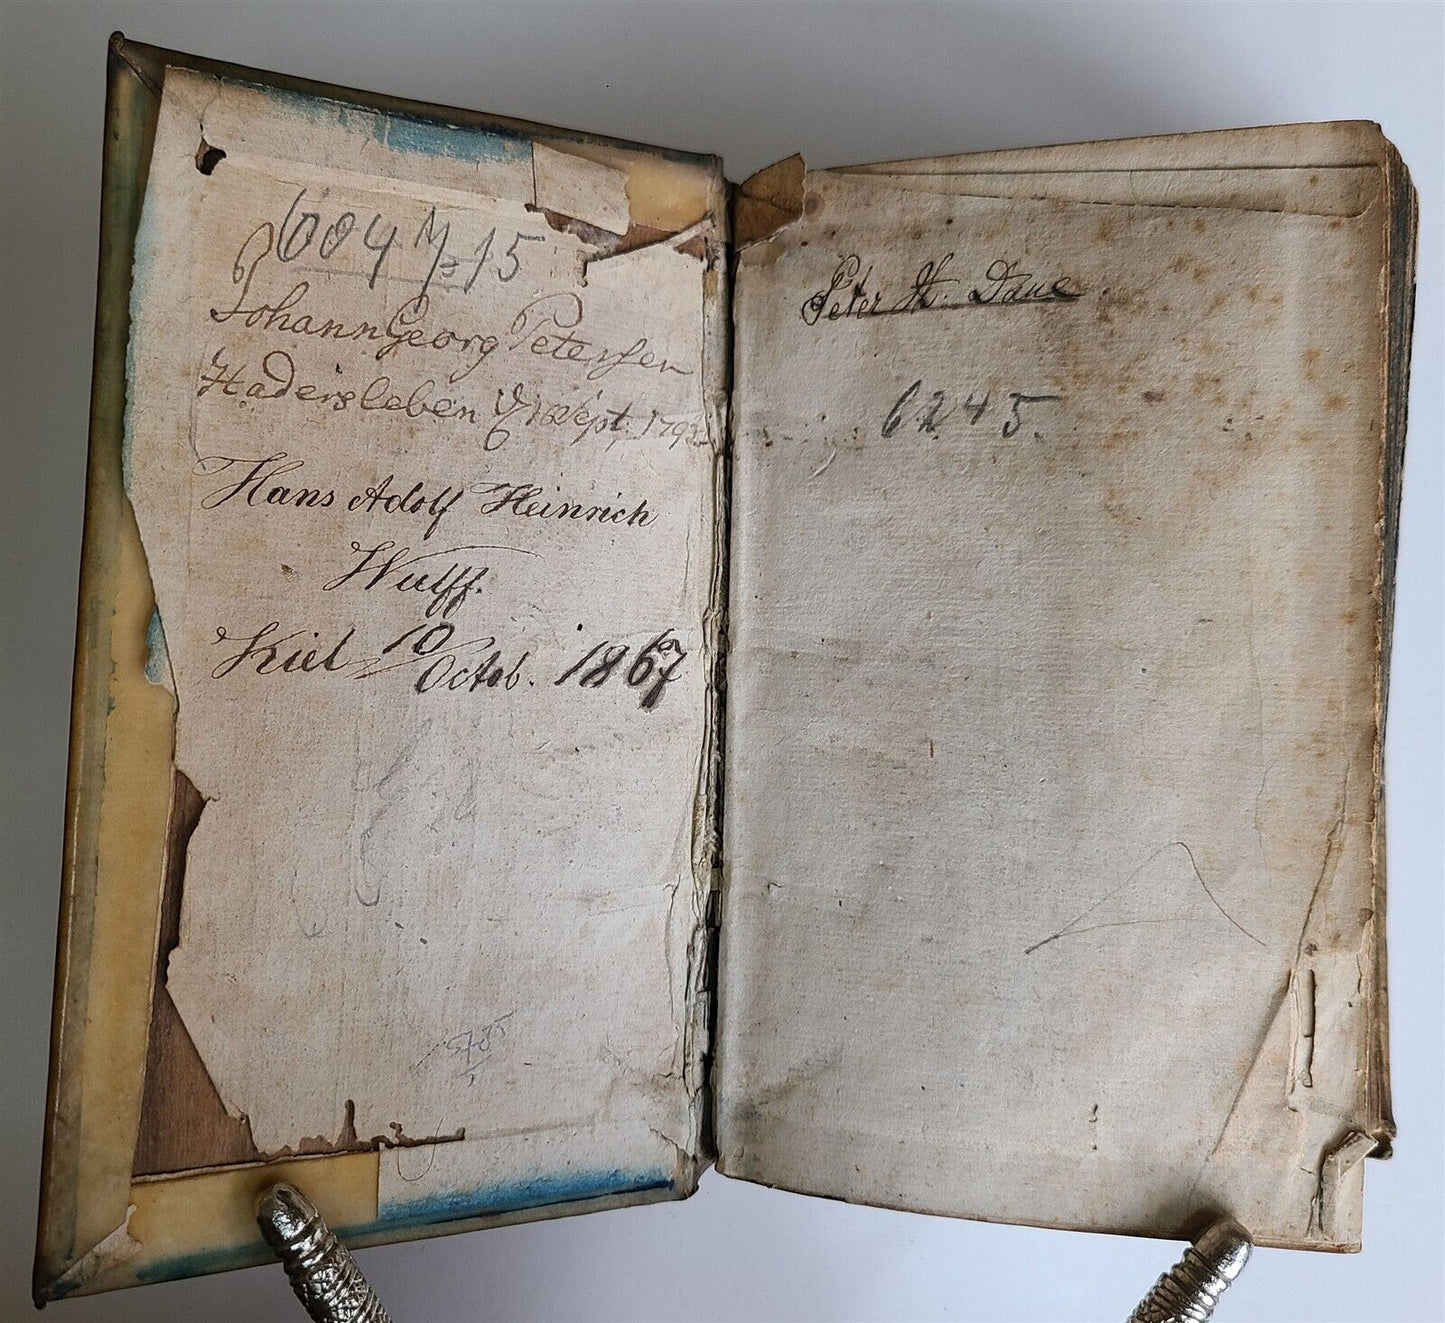 6004
15
Johann Georg Petersen
Hadersleben Sept. 179
Hans Adolf Heinrich
Wulff.
Kiel 10 Octob. 1867
5785
Peter H. Daue
6245.